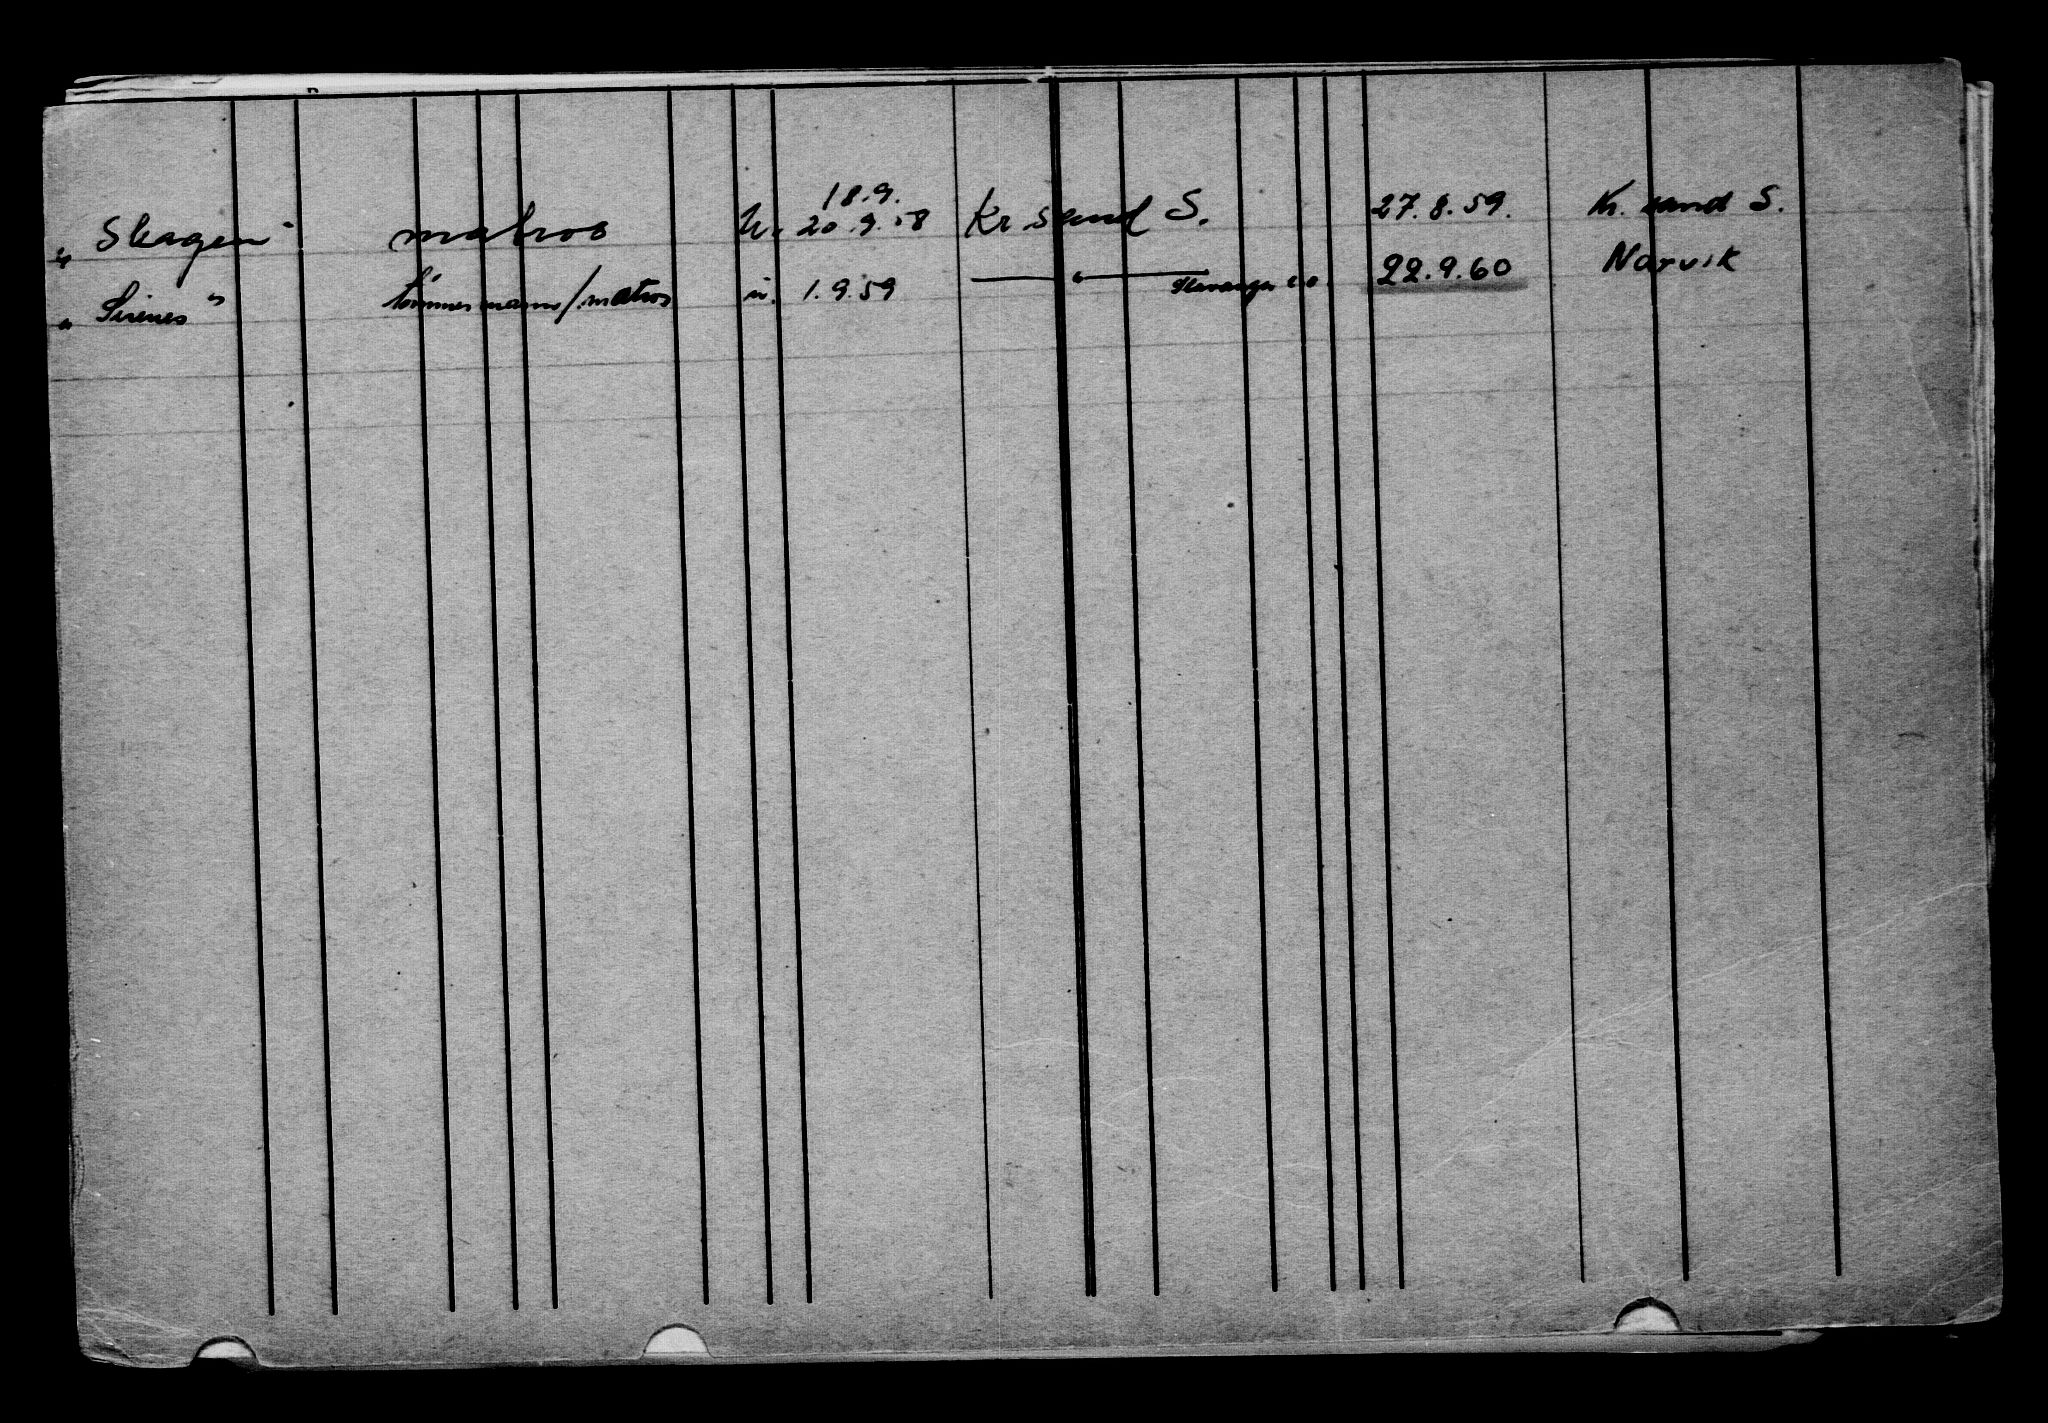 18.9.
„Skagen" matros u. 20.9.58 Kr.sand S. 27.8.59. Kr.sand S.
„Sirenes" tömmermann/matros u. 1.9.59 — " — 22.9.60 Narvik